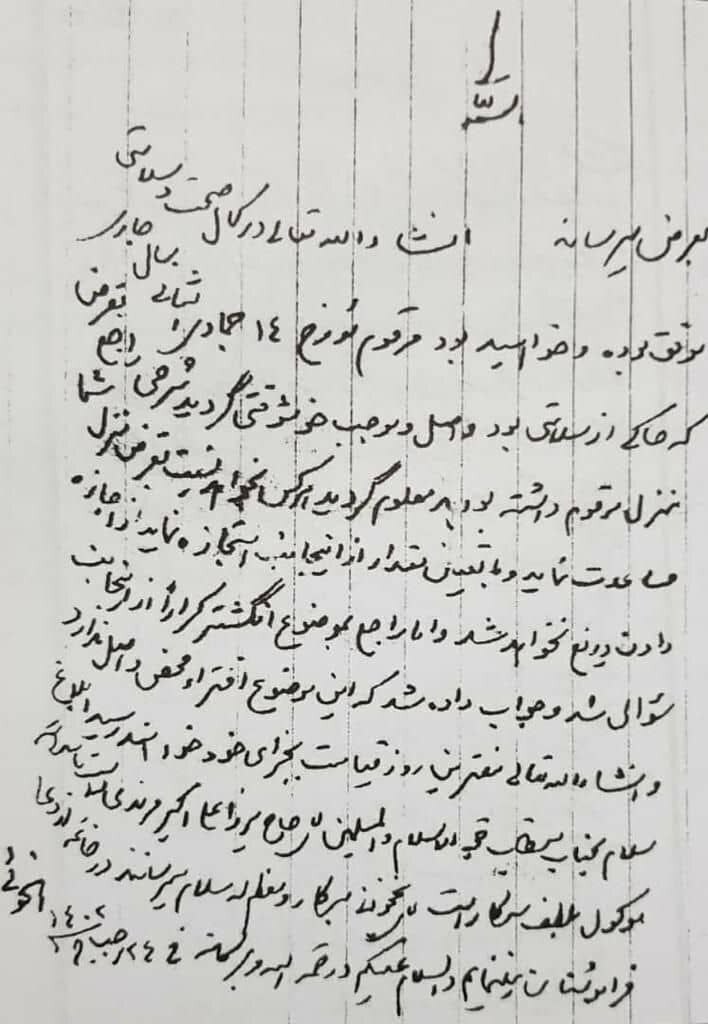 بسمه
بعرض میرساند انشاء الله تعالی در کمال صحت و سلامتی
موفق بوده و خواهید بود مرقوم مورخ ١٤ جمادی الثانی بسال جاری
که حاکی از سلامتی بود واصل و موجب خوشوقتی گردید شرحی راجع بقرض
منزل مرقوم داشته بودید معلوم گردید اگر کسی بخواهد نسبت بقرض منزل شما
مساعدت نماید و با تعیین مقدار از اینجانب استجازه نماید از اجازه
دادن دریغ نخواهد شد و اما راجع بموضوع انگشتر کراراً از اینجانب
سؤال شد و جواب داده شد که این موضوع افتراء محض و اصل ندارد
و انشاء الله تعالی مفترین روز قیامت بجزای خود خواهند رسید ابلاغ
سلام بجناب حجة الاسلام والمسلمین حاج میرزا علی اکبر مرندی
موکول بلطف سرکار است سرکار و معظم له سلام میرسانند در خاتمه از دعا
فراموشتان نمینمایم والسلام علیکم ورحمة الله وبرکاته فی ٢٤ رجب ١٤٠٢
الخوئی